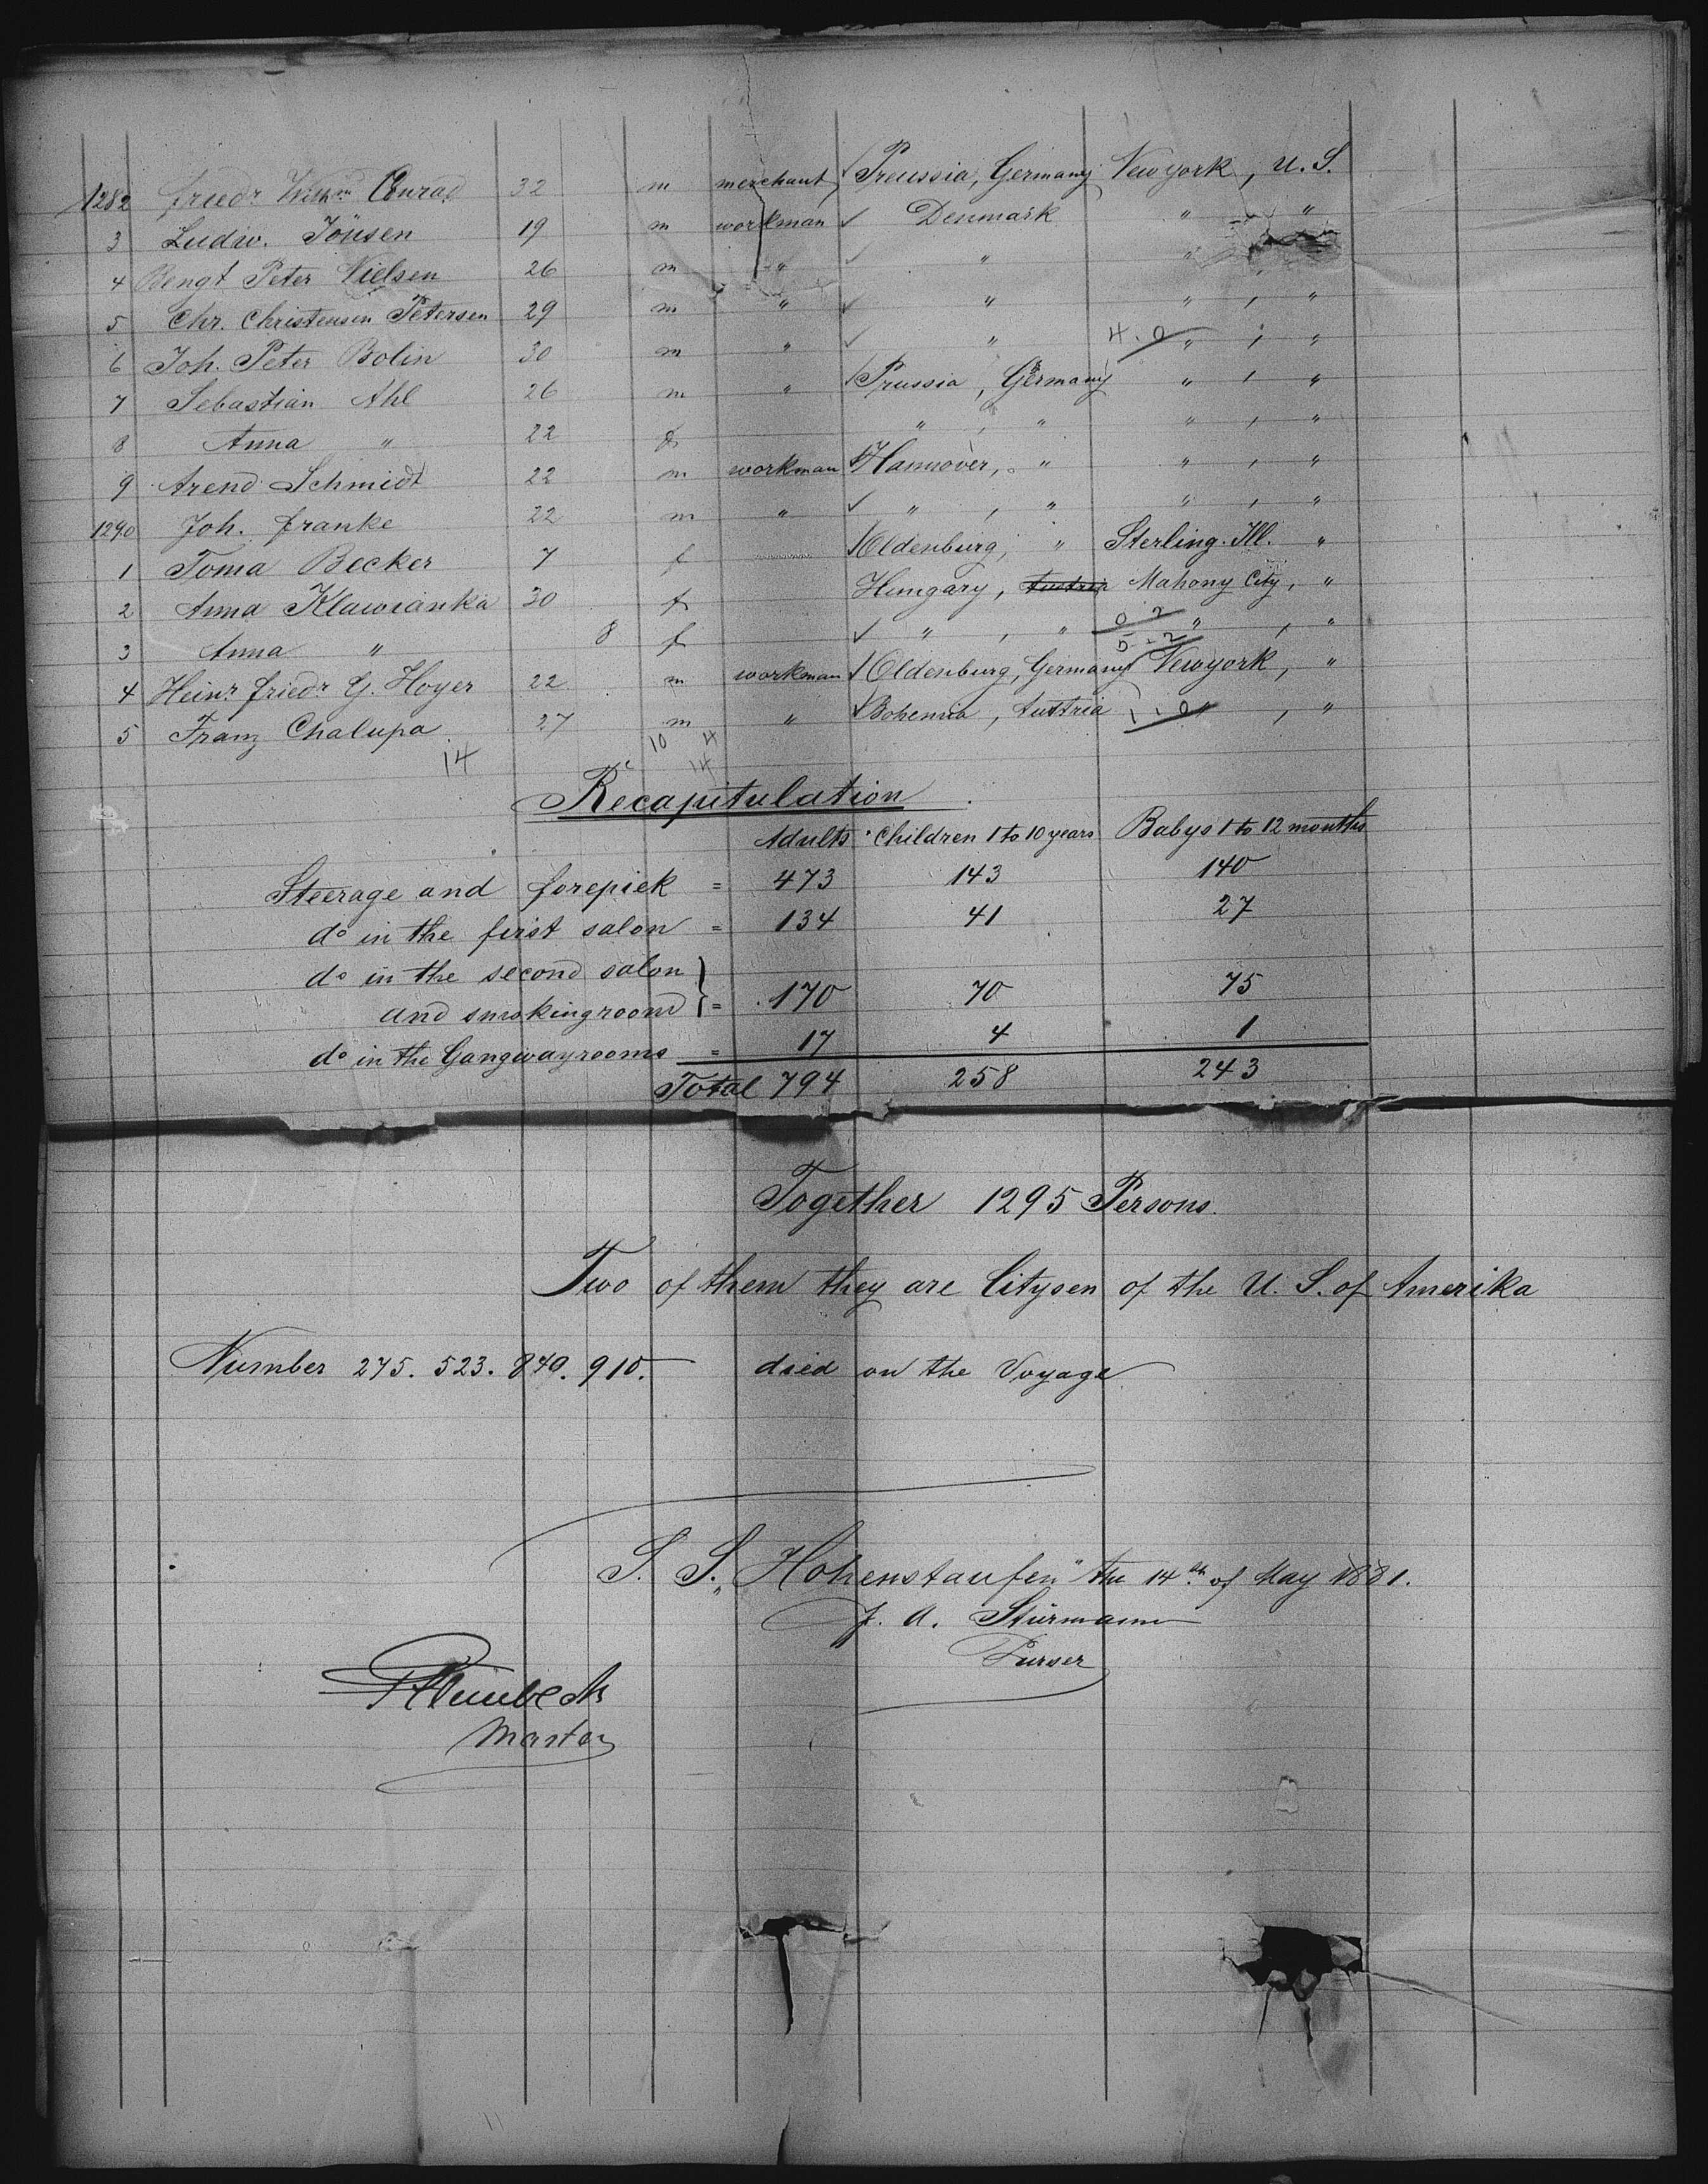 1282 Friedr Wilhm Conrad 32 m merchant ✓ Preussia, Germany Newyork, U.S.
3 Ludw. Jönsen 19 m workman ✓ Denmark " "
4 Bengt Peter Nielsen 26 m " ✓ " "
5 Chr. Christensen Petersen 29 m " ✓ " " , "
6 Joh. Peter Bolin 30 m " ✓ " 4.0 " , "
7 Sebastian Ahl 26 m " ✓ Prussia, Germany " , "
8 Anna " 22 f " , " " , "
9 Arend Schmidt 22 m workman ✓ Hannover, " " , "
1290 Joh. Franke 22 m " ✓ " , " " , "
1 Toma Becker 7 f ✓ Oldenburg, " Sterling. Ill. "
2 Anna Klawianka 30 f Hungary, Austria Mahony City, "
3 Anna " 8 f ✓ " , " 0 2 5-2 " , "
4 Heinr. Friedr G. Hoyer 22 m workman ✓ Oldenburg, Germany Newyork, "
5 Franz Chalupa 27 m " ✓ Bohemia, Austria 1-0 " , "
14 10 4
14
Recapitulation
Adults Children 1 to 10 years Babys 1 to 12 months
Steerage and forepiek = 473 143 140
do in the first salon = 134 41 27
do in the second salon
and smokingroom } = 170 70 75
do in the Gangwayrooms = 17 4 1
Total 794 258 243
Together 1295 Persons.
Two of them they are Citysen of the U. S. of Amerika
Number 275. 523. 840. 910. died on the Voyage
S. S. „Hohenstaufen" the 14th of May 1881.
J. A. Stürmann
Purser
Master